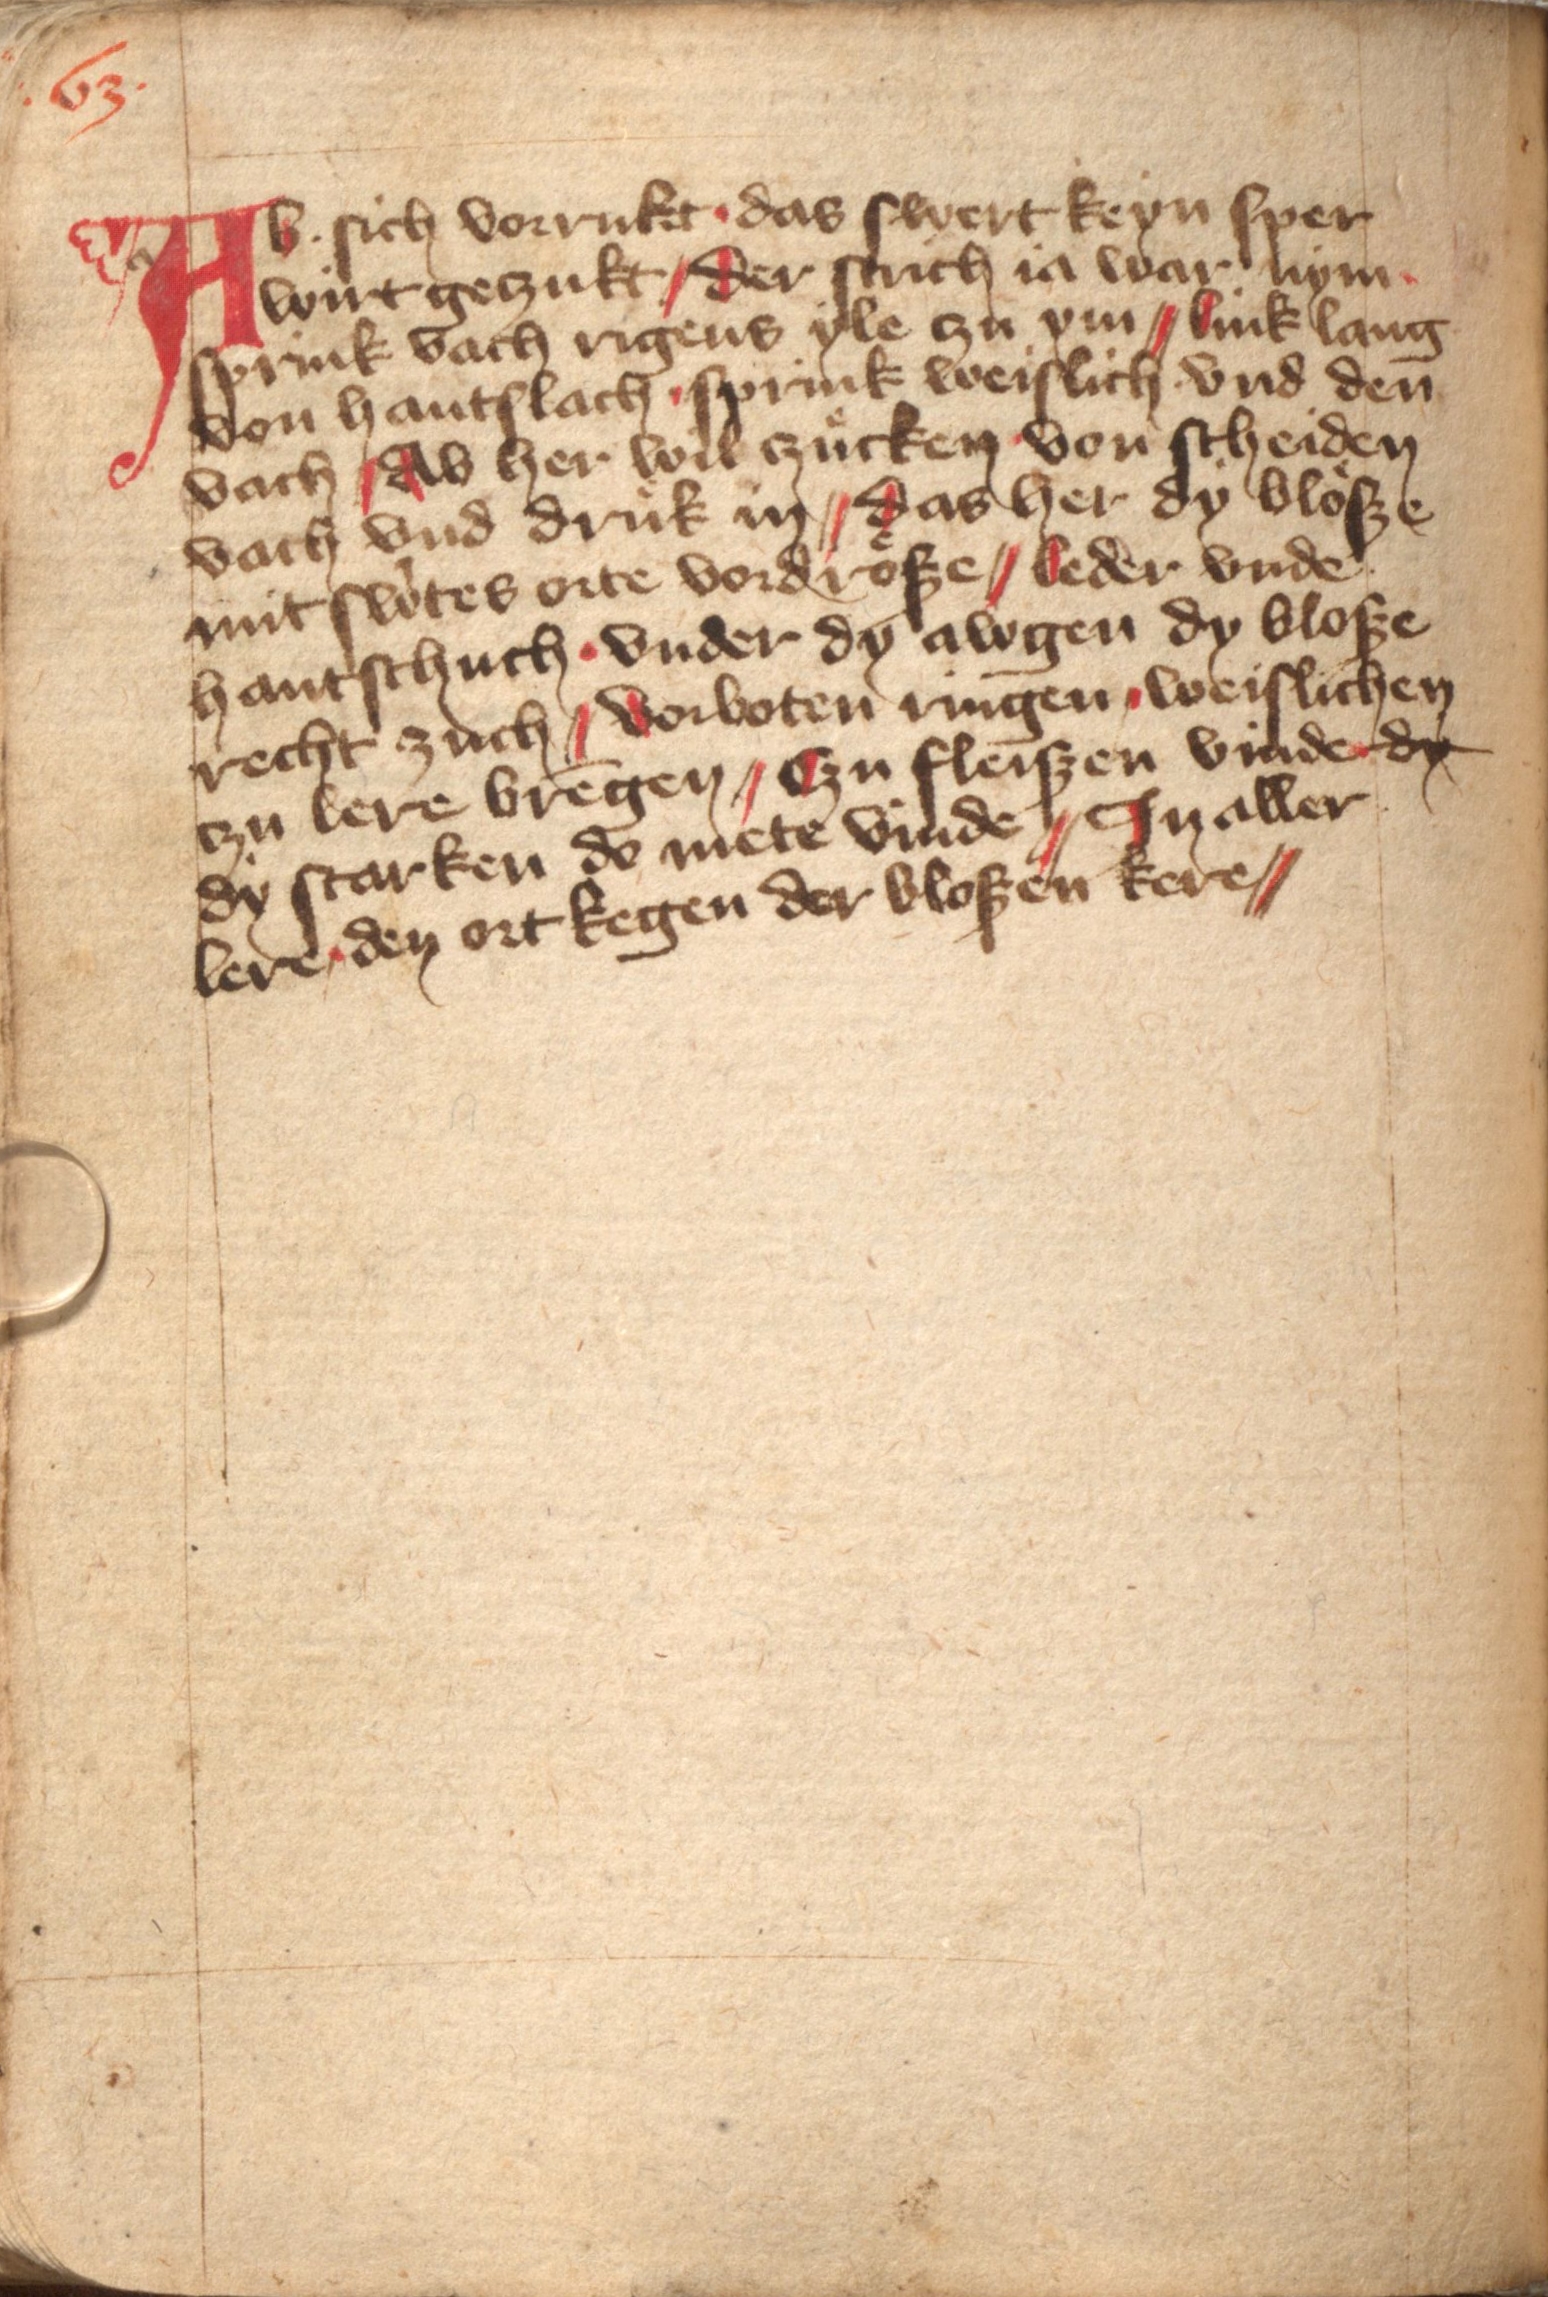 .63.
Ab. sich vorrukt · das swert keyn sper
wirt geczukt / der strich ia war nym ·
sprink vach rigens yle czu ym // link lang
von hantslach · sprink weislich vnd den̄
vach / Ab her wil czuͤcken von scheiden
vach vnd druͤk in // das her dy bloͤsze
mit sw͛tes orte vordroͤsze // leder vnde
hantschuch · vnder dy awgen dy blosze
recht zuch // Vorboten rinḡen · weislichen
czu lere brēgen / Czu sleiszen vinde · dy
dy starken do mete vinde // In aller
lere · den ort kegen der bloszen kere //